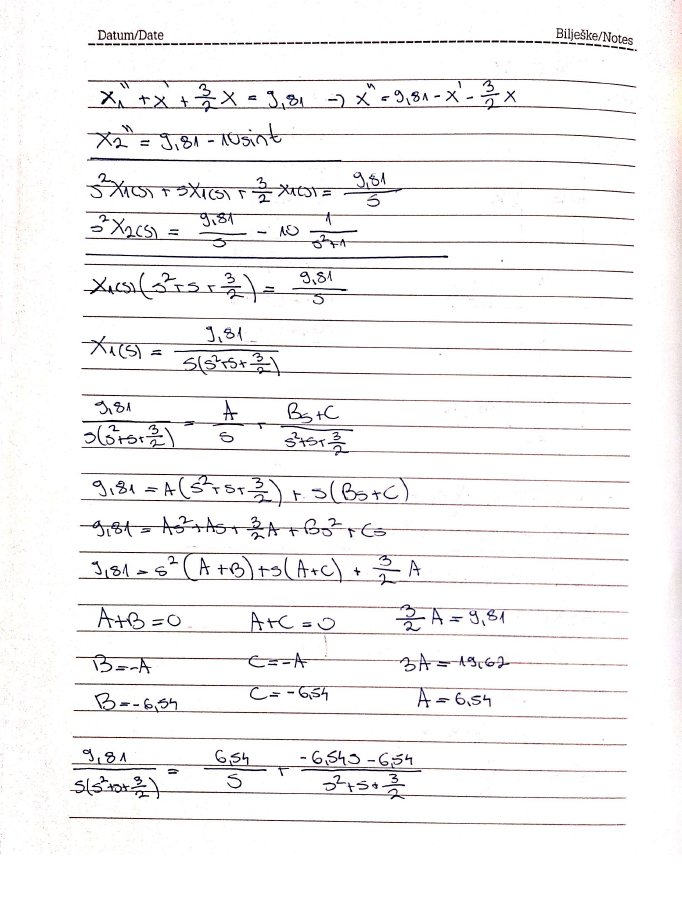 Datum/Date Bilješke/Notes
x₁'' + x' + 3/2 x = 9,81 → x'' = 9,81 - x' - 3/2 x
x₂'' = 9,81 - 10sint
s²X₁(s) + sX₁(s) + 3/2 X₁(s) = 9,81/s
s²X₂(s) = 9,81/s - 10 1/(s²+1)
X₁(s)(s²+s+3/2) = 9,81/s
X₁(s) = 9,81/(s(s²+s+3/2))
9,81/(s(s²+s+3/2)) = A/s + (Bs+C)/(s²+s+3/2)
9,81 = A(s²+s+3/2) + s(Bs+C)
9,81 = As²+As+3/2A+Bs²+Cs
9,81 = s²(A+B)+s(A+C) + 3/2 A
A+B=0 A+C=0 3/2 A = 9,81
B=-A C=-A 3A = 19,62
B=-6,54 C=-6,54 A = 6,54
9,81/(s(s²+s+3/2)) = 6,54/s + (-6,54s-6,54)/(s²+s+3/2)